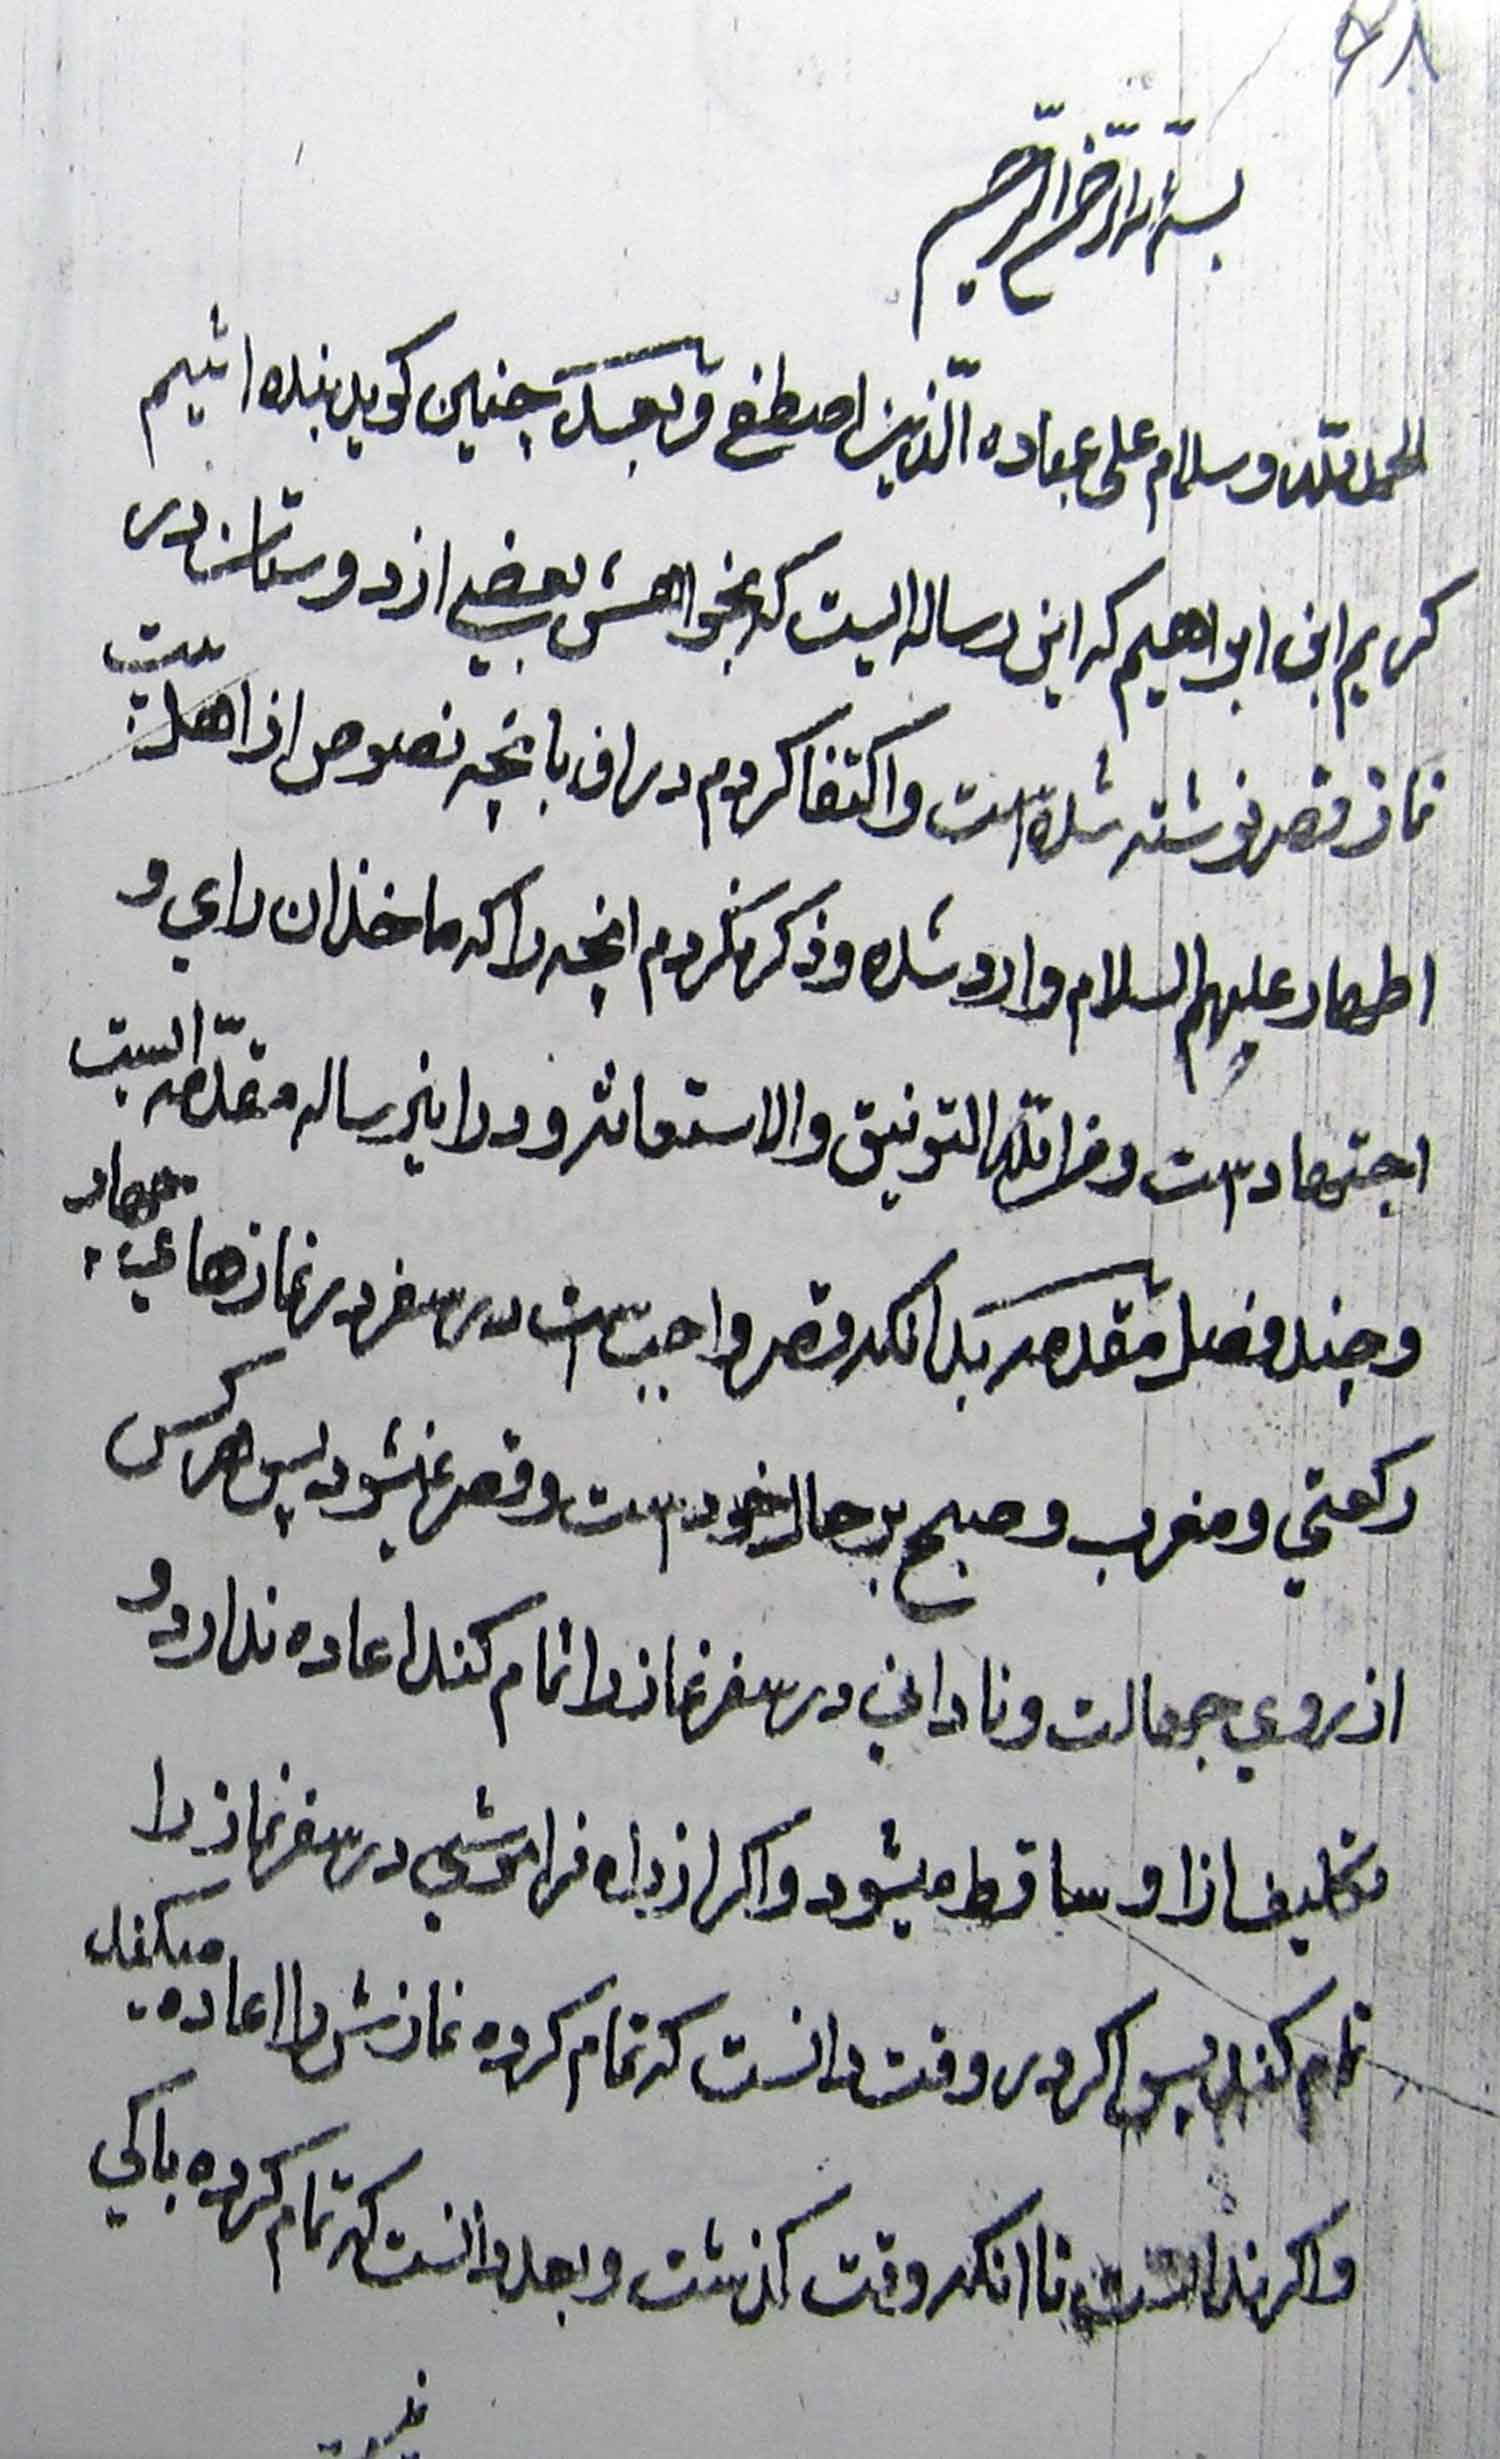 ۶۸
بسم الله الرحمن الرحیم
الحمد لله وسلام علی عباده الّذین اصطفی و بعد چنین کوید بنده اثیم
کریم ابن ابراهیم که این رساله ایست که بخواهش بعضی از دوستان در
نماز قصر نوشته شده است و اکتفا کردم در ان بانچه نصوص از اهل بیت
اطهار علیهم السلام وارد شده و ذکر نکردم انچه را که ماخذ ان رای و
اجتهاد است و من الله التوفیق والاستعانة و در این رساله مقدّمه ایست
و چند فصل مقدمه بدانکه قصر واجب است در سفر در نمازهای چهار
رکعتی و مغرب و صبح بر حال خود است و قصر نمیشود پس هر کس
از روی جهالت و نادانی در سفر نماز را تمام کند اعاده ندارد و
تکلیف از او ساقط میشود و اکر از راه فراموشی در سفر نماز را
تمام کند پس اکر در وقت دانست که تمام کرده نمازش را اعاده میکند
و اکر ندانست تا انکه وقت کذشت و بعد دانست که تمام کرده باکی
نیست